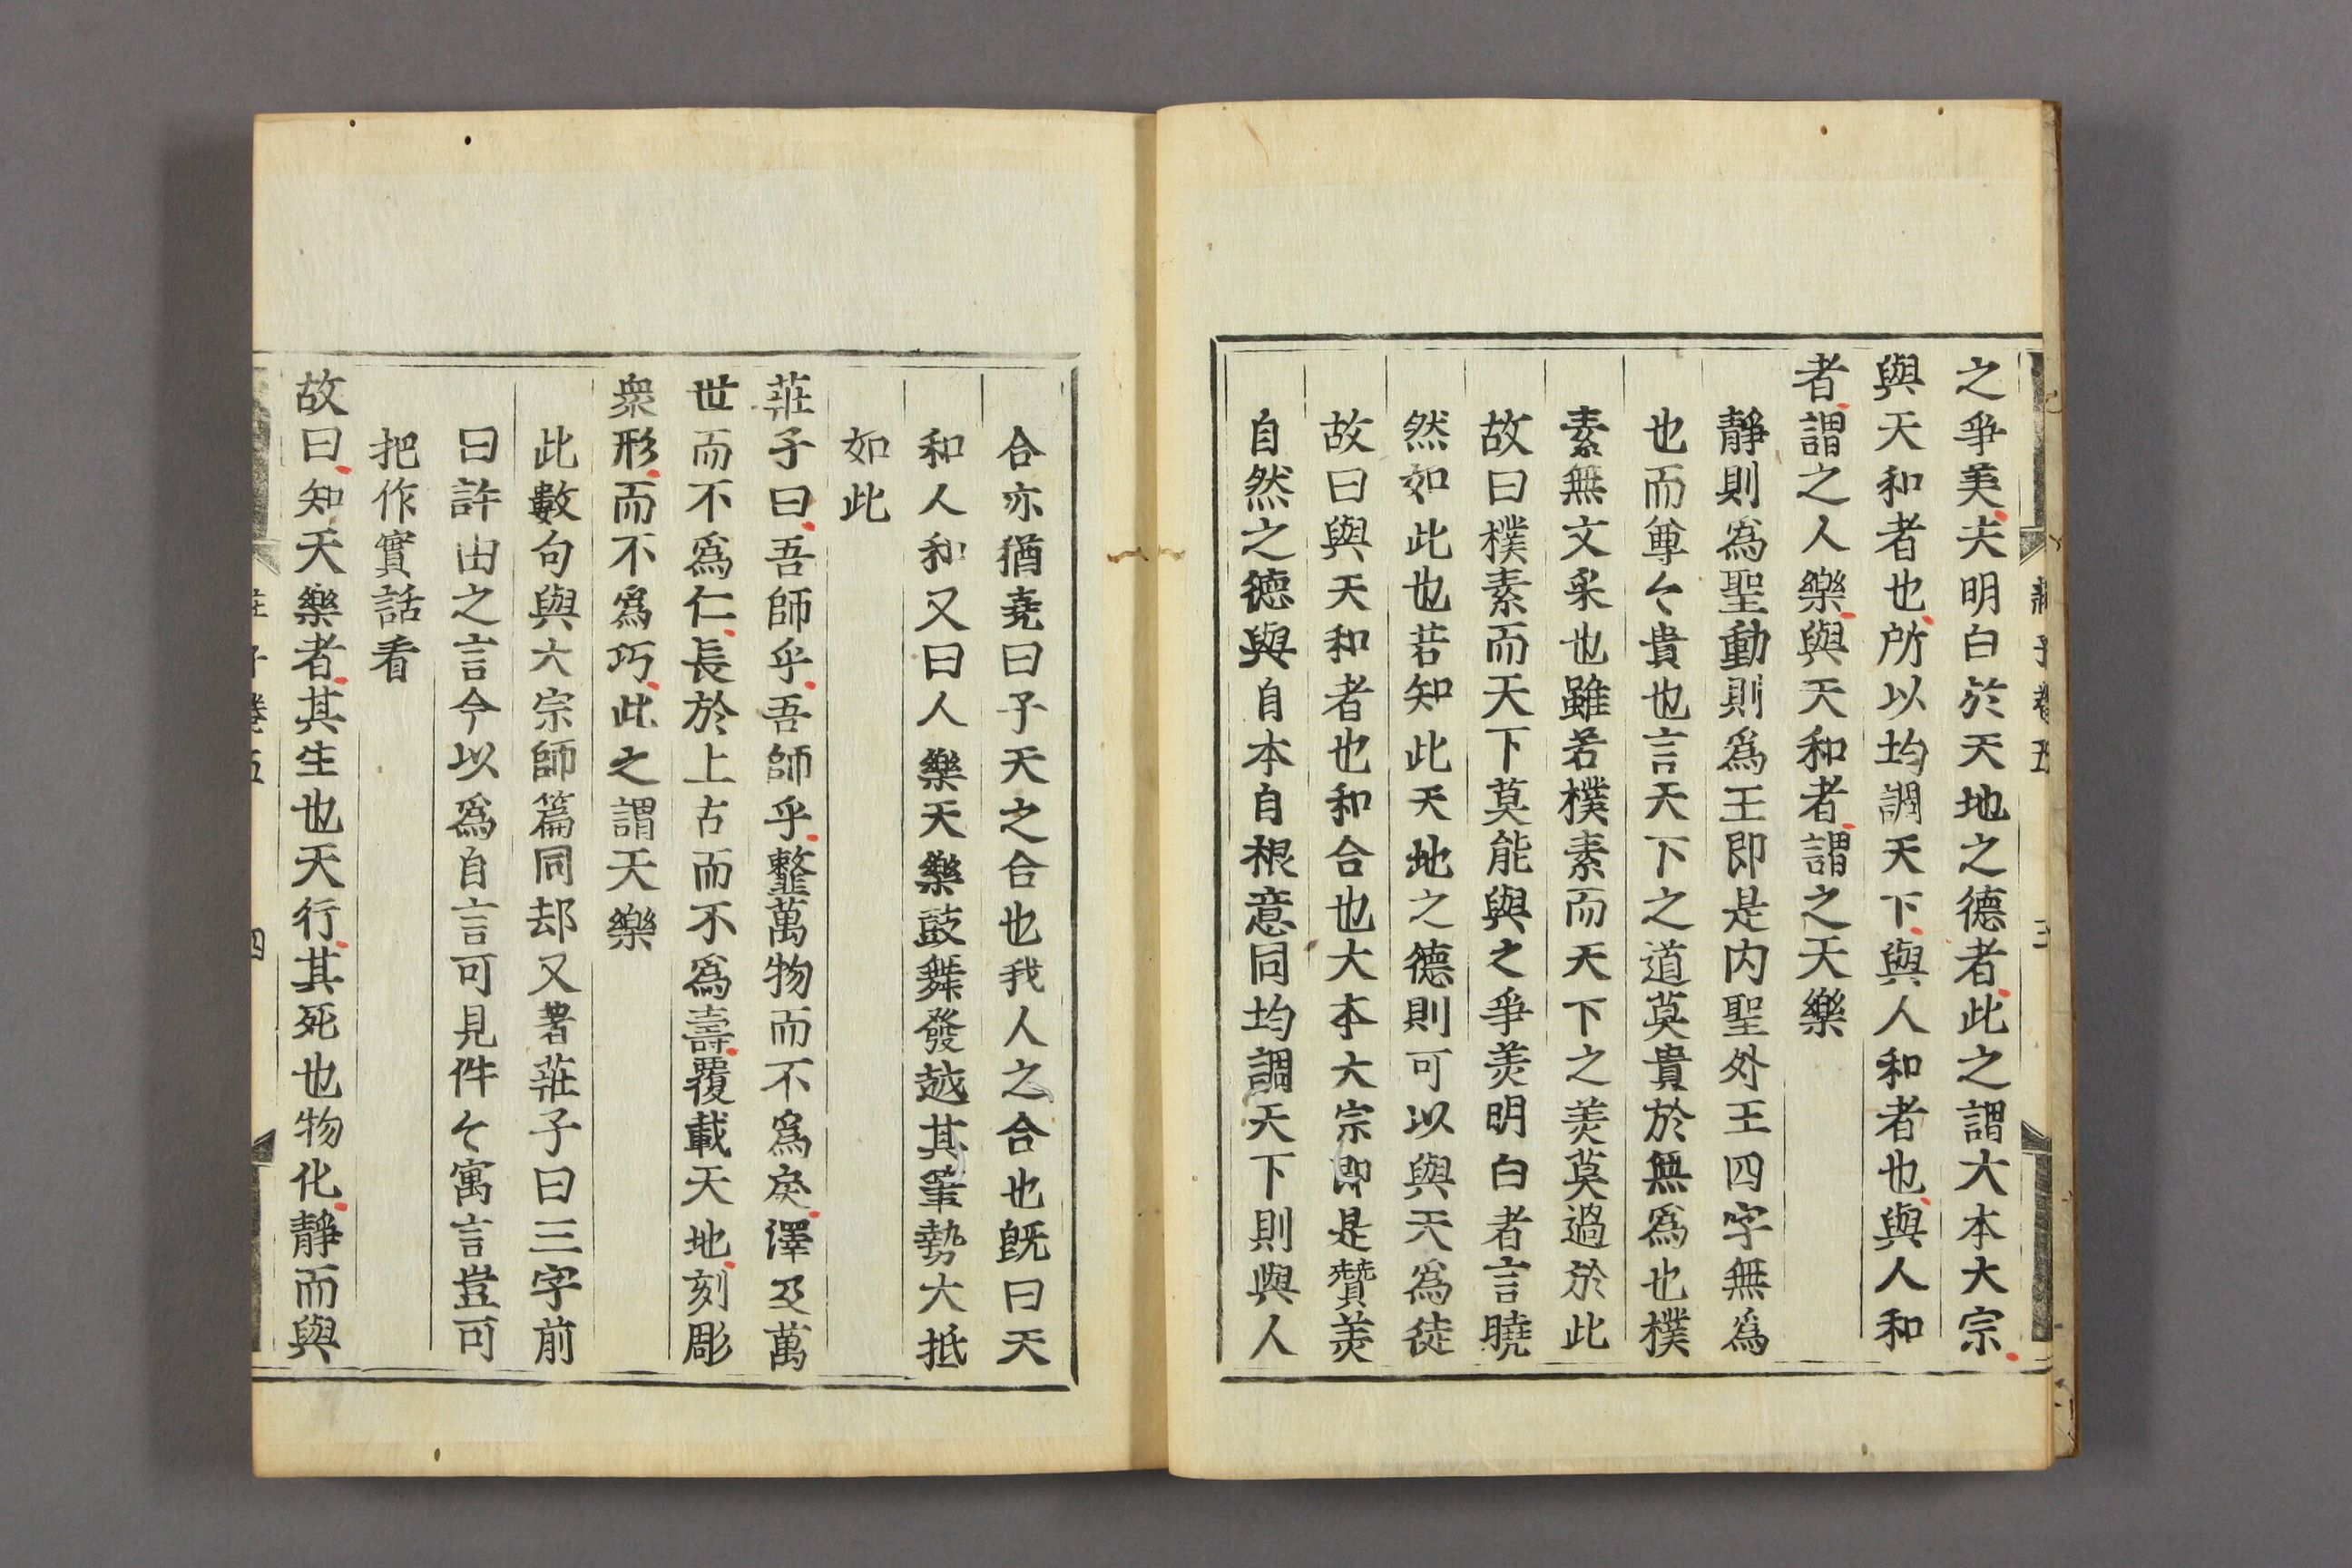 莊子卷五
三
之爭羙夫明白於天地之德者此之謂大本大宗
與天和者也所以均調天下與人和者也與人和
者謂之人樂與天和者謂之天樂
靜則爲聖動則爲王即是内聖外王四字無爲
也而尊々貴也言天下之道莫貴於無爲也樸
素無文采也雖若樸素而天下之羙莫過於此
故曰樸素而天下莫能與之爭羙明白者言曉
然如此也若知此天地之德則可以與天爲徒
故曰與天和者也和合也大本大宗即是贊羙
自然之德與自本自根意同均調天下則與人
合亦猶堯曰子天之合也我人之合也旣曰天
和人和又曰人樂天樂鼓舞發越其筆勢大抵
如此
莊子曰吾師乎吾師乎䪠萬物而不爲戾澤及萬
世而不爲仁長於上古而不爲壽覆載天地刻彫
衆形而不爲巧此之謂天樂
此數句與大宗師篇同却又著莊子曰三字前
曰許由之言今以爲自言可見件々寓言豈可
把作實話看
故曰知天樂者其生也天行其死也物化靜而與
莊子卷五
四